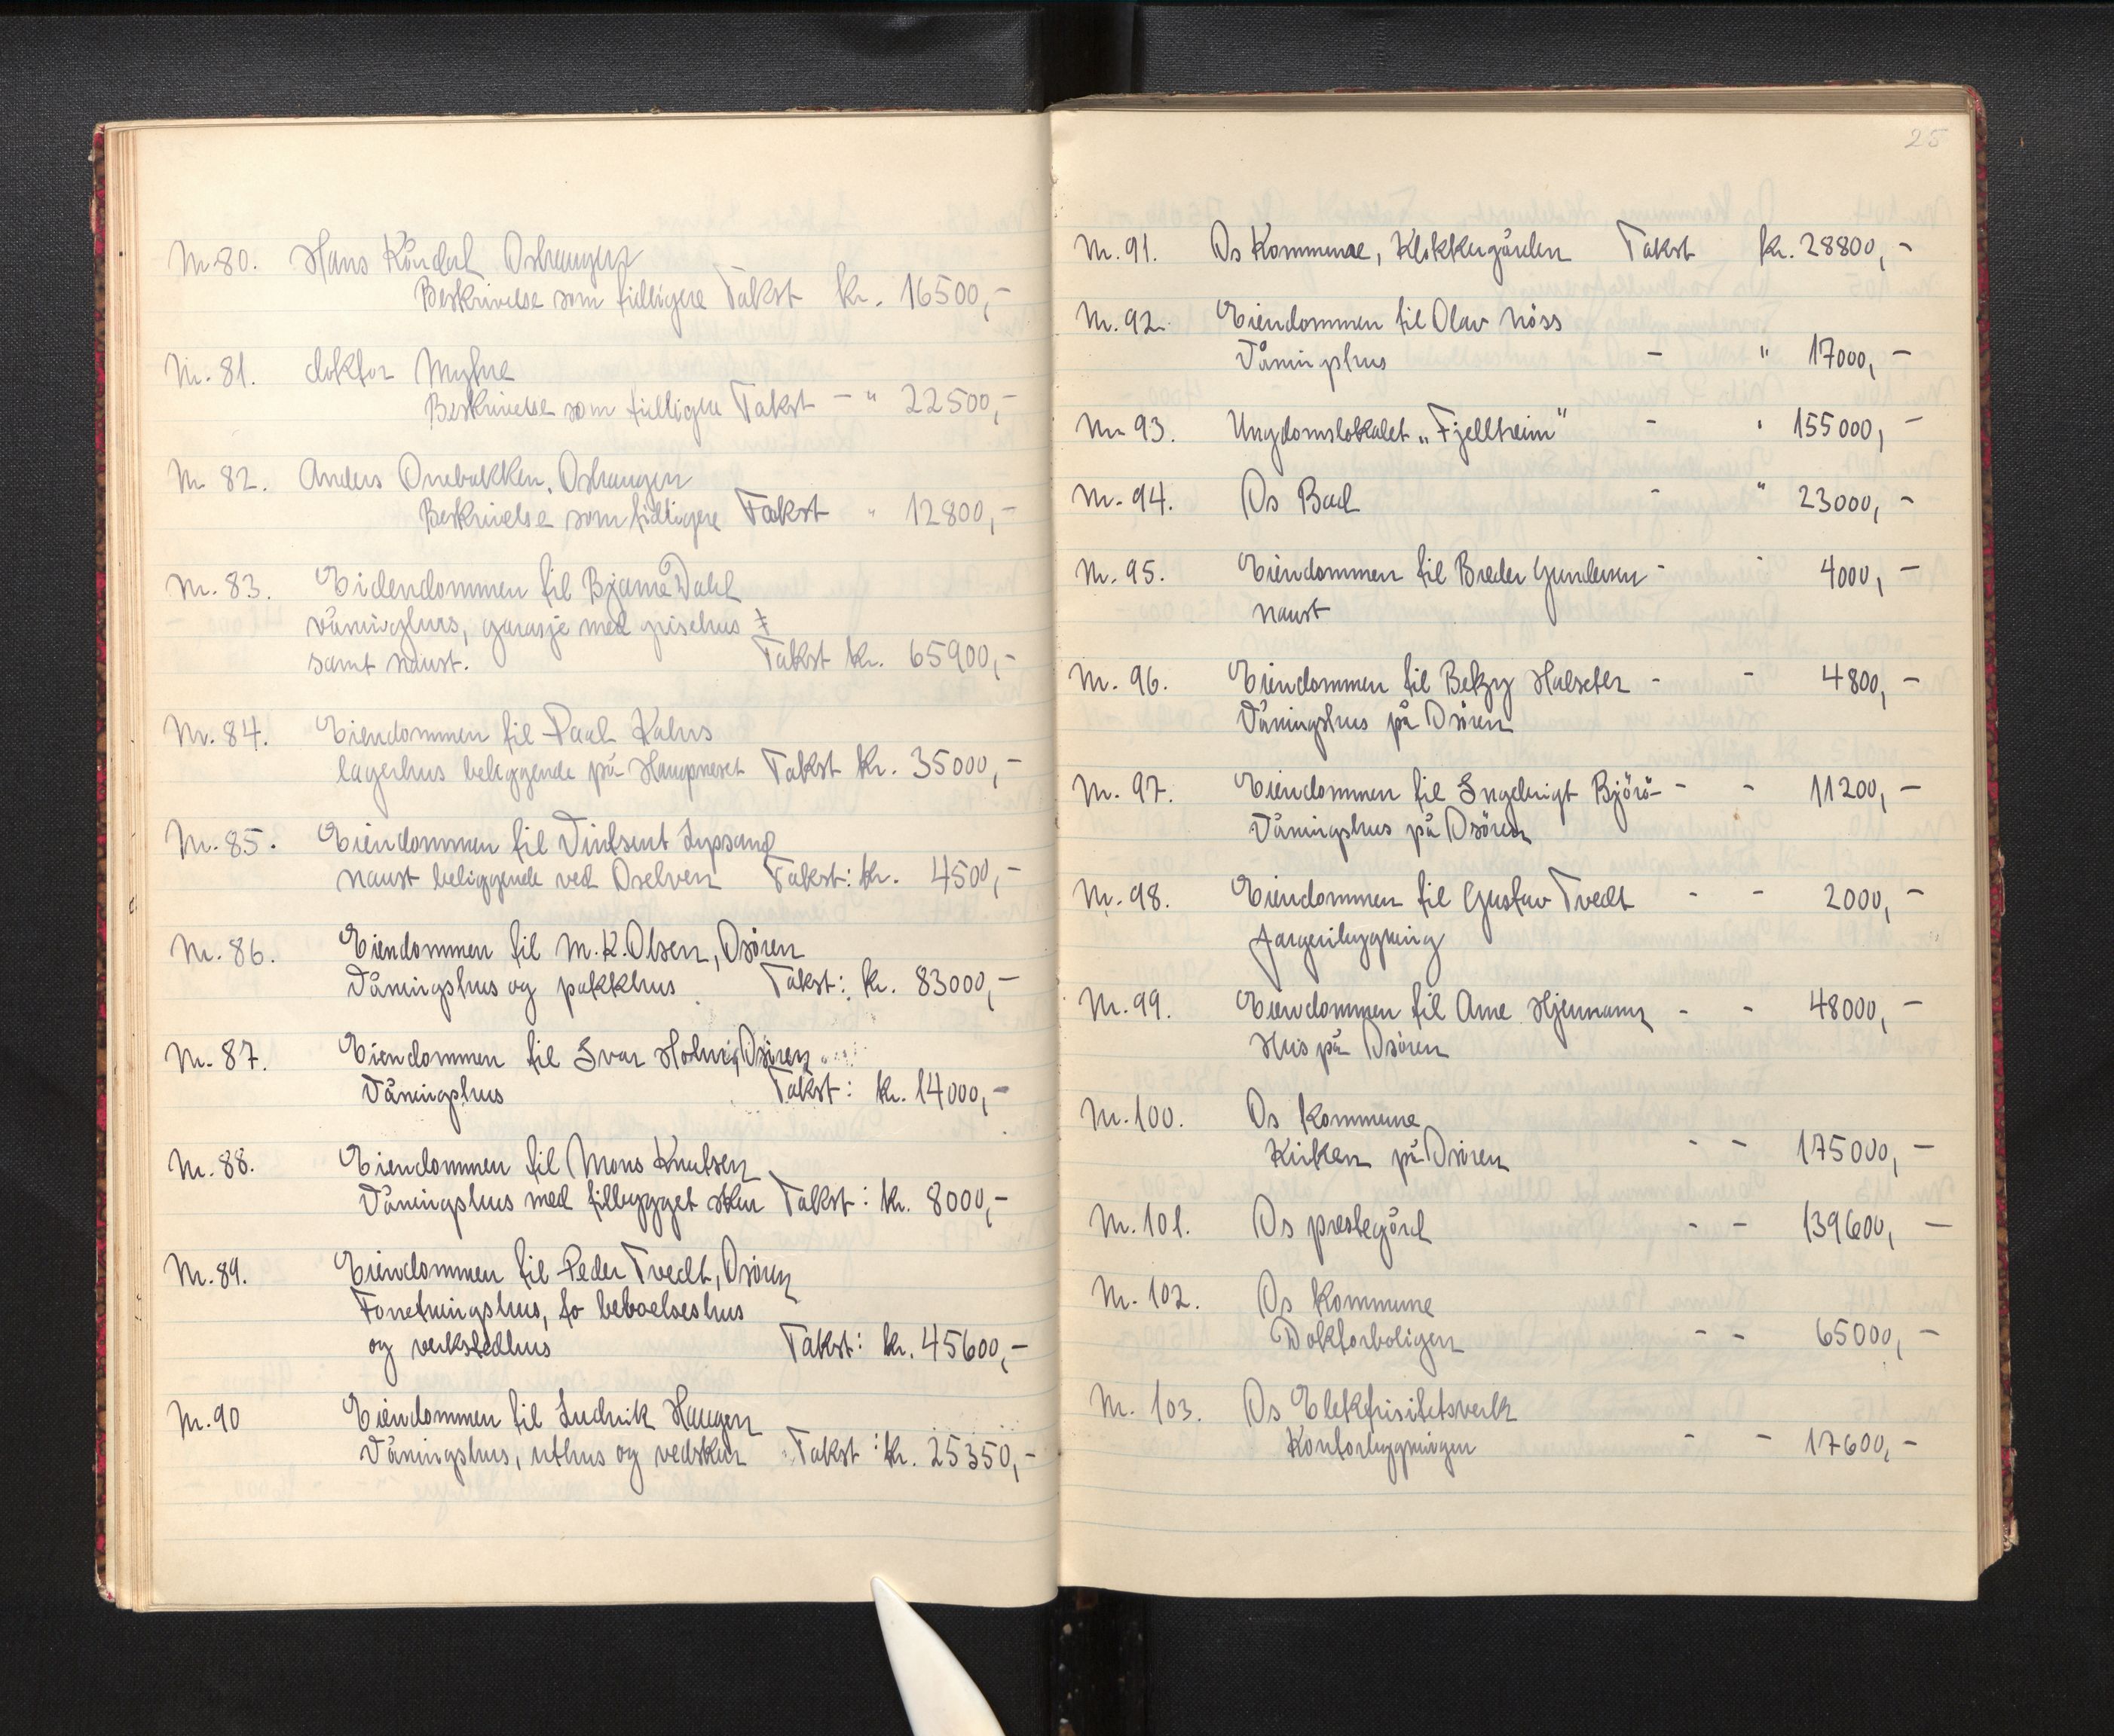 Nr. 80. Hans Köndal Oshaugen
Beskrivelse som tidligere Takst kr. 16500,-
Nr. 81. doktor Myhre
Beskrivelse som tidligere Takst - " 22500,-
Nr. 82. Anders Drebakken, Oshaugen
Beskrivelse som tidligere Takst " 12800,-
Nr. 83. Eidendommen til Bjarne Dahl
våningshus, garasje med grisehus
samt naust. Takst kr. 65900,-
Nr. 84. Eiendommen til Paul Kahrs
lagerhus beliggende på Haugneset Takst kr. 35000,-
Nr. 85. Eiendommen til Vintsent Lepsand
naust beliggende ved Oselven Takst: kr. 4500,-
Nr. 86. Eiendommen til M. K. Olsen, Osören
Våningshus og pakkhus Takst: kr. 83000,-
Nr. 87. Eiendommen til Ivar Holm, Osören
Våningshus Takst: kr. 14000,-
Nr. 88. Eiendommen til Mons Knutsen
Våningshus med tilbygget skur Takst: kr. 8000,-
Nr. 89. Eiendommen til Peder Tvedt, Osören
Forretningshus, to beboelseshus
og verkstedhus Takst: kr. 45600,-
Nr. 90 Eiendommen til Ludvik Haugen
Våningshus, uthus og vedskur Takst: kr. 25350,-
25
Nr. 91. Os Kommune, Klokkergården Takst kr. 28800,-
Nr. 92. Eiendommen til Olav Nöss
Våningshus - " 17000,-
Nr. 93. Ungdomslokalet „Fjellheim" - " 155000,-
Nr. 94. Os Bad - " 23000,-
Nr. 95. Eiendommen til Brødr Gundersen - " 4000,-
naust
Nr. 96. Eiendommen til Betzy Halseth - - 4800,-
Våningshus på Osören
Nr. 97. Eiendommen til Ingebrigt Björö - - 11200,-
Våningshus på Osören
Nr. 98. Eiendommen til Gustav Tvedt - - 2000,-
fargeribygning
Nr. 99. Eiendommen til Arne Hjelmann - - 48000,-
Hus på Osören
Nr. 100. Os Kommune
Kirken på Osören - - 175000,-
Nr. 101. Os prestegård - - 139600,-
Nr. 102. Os Kommune
Doktorboligen - - 65000,-
Nr. 103. Os Elektrisitetsverk
Kontorbygningen - - 17600,-